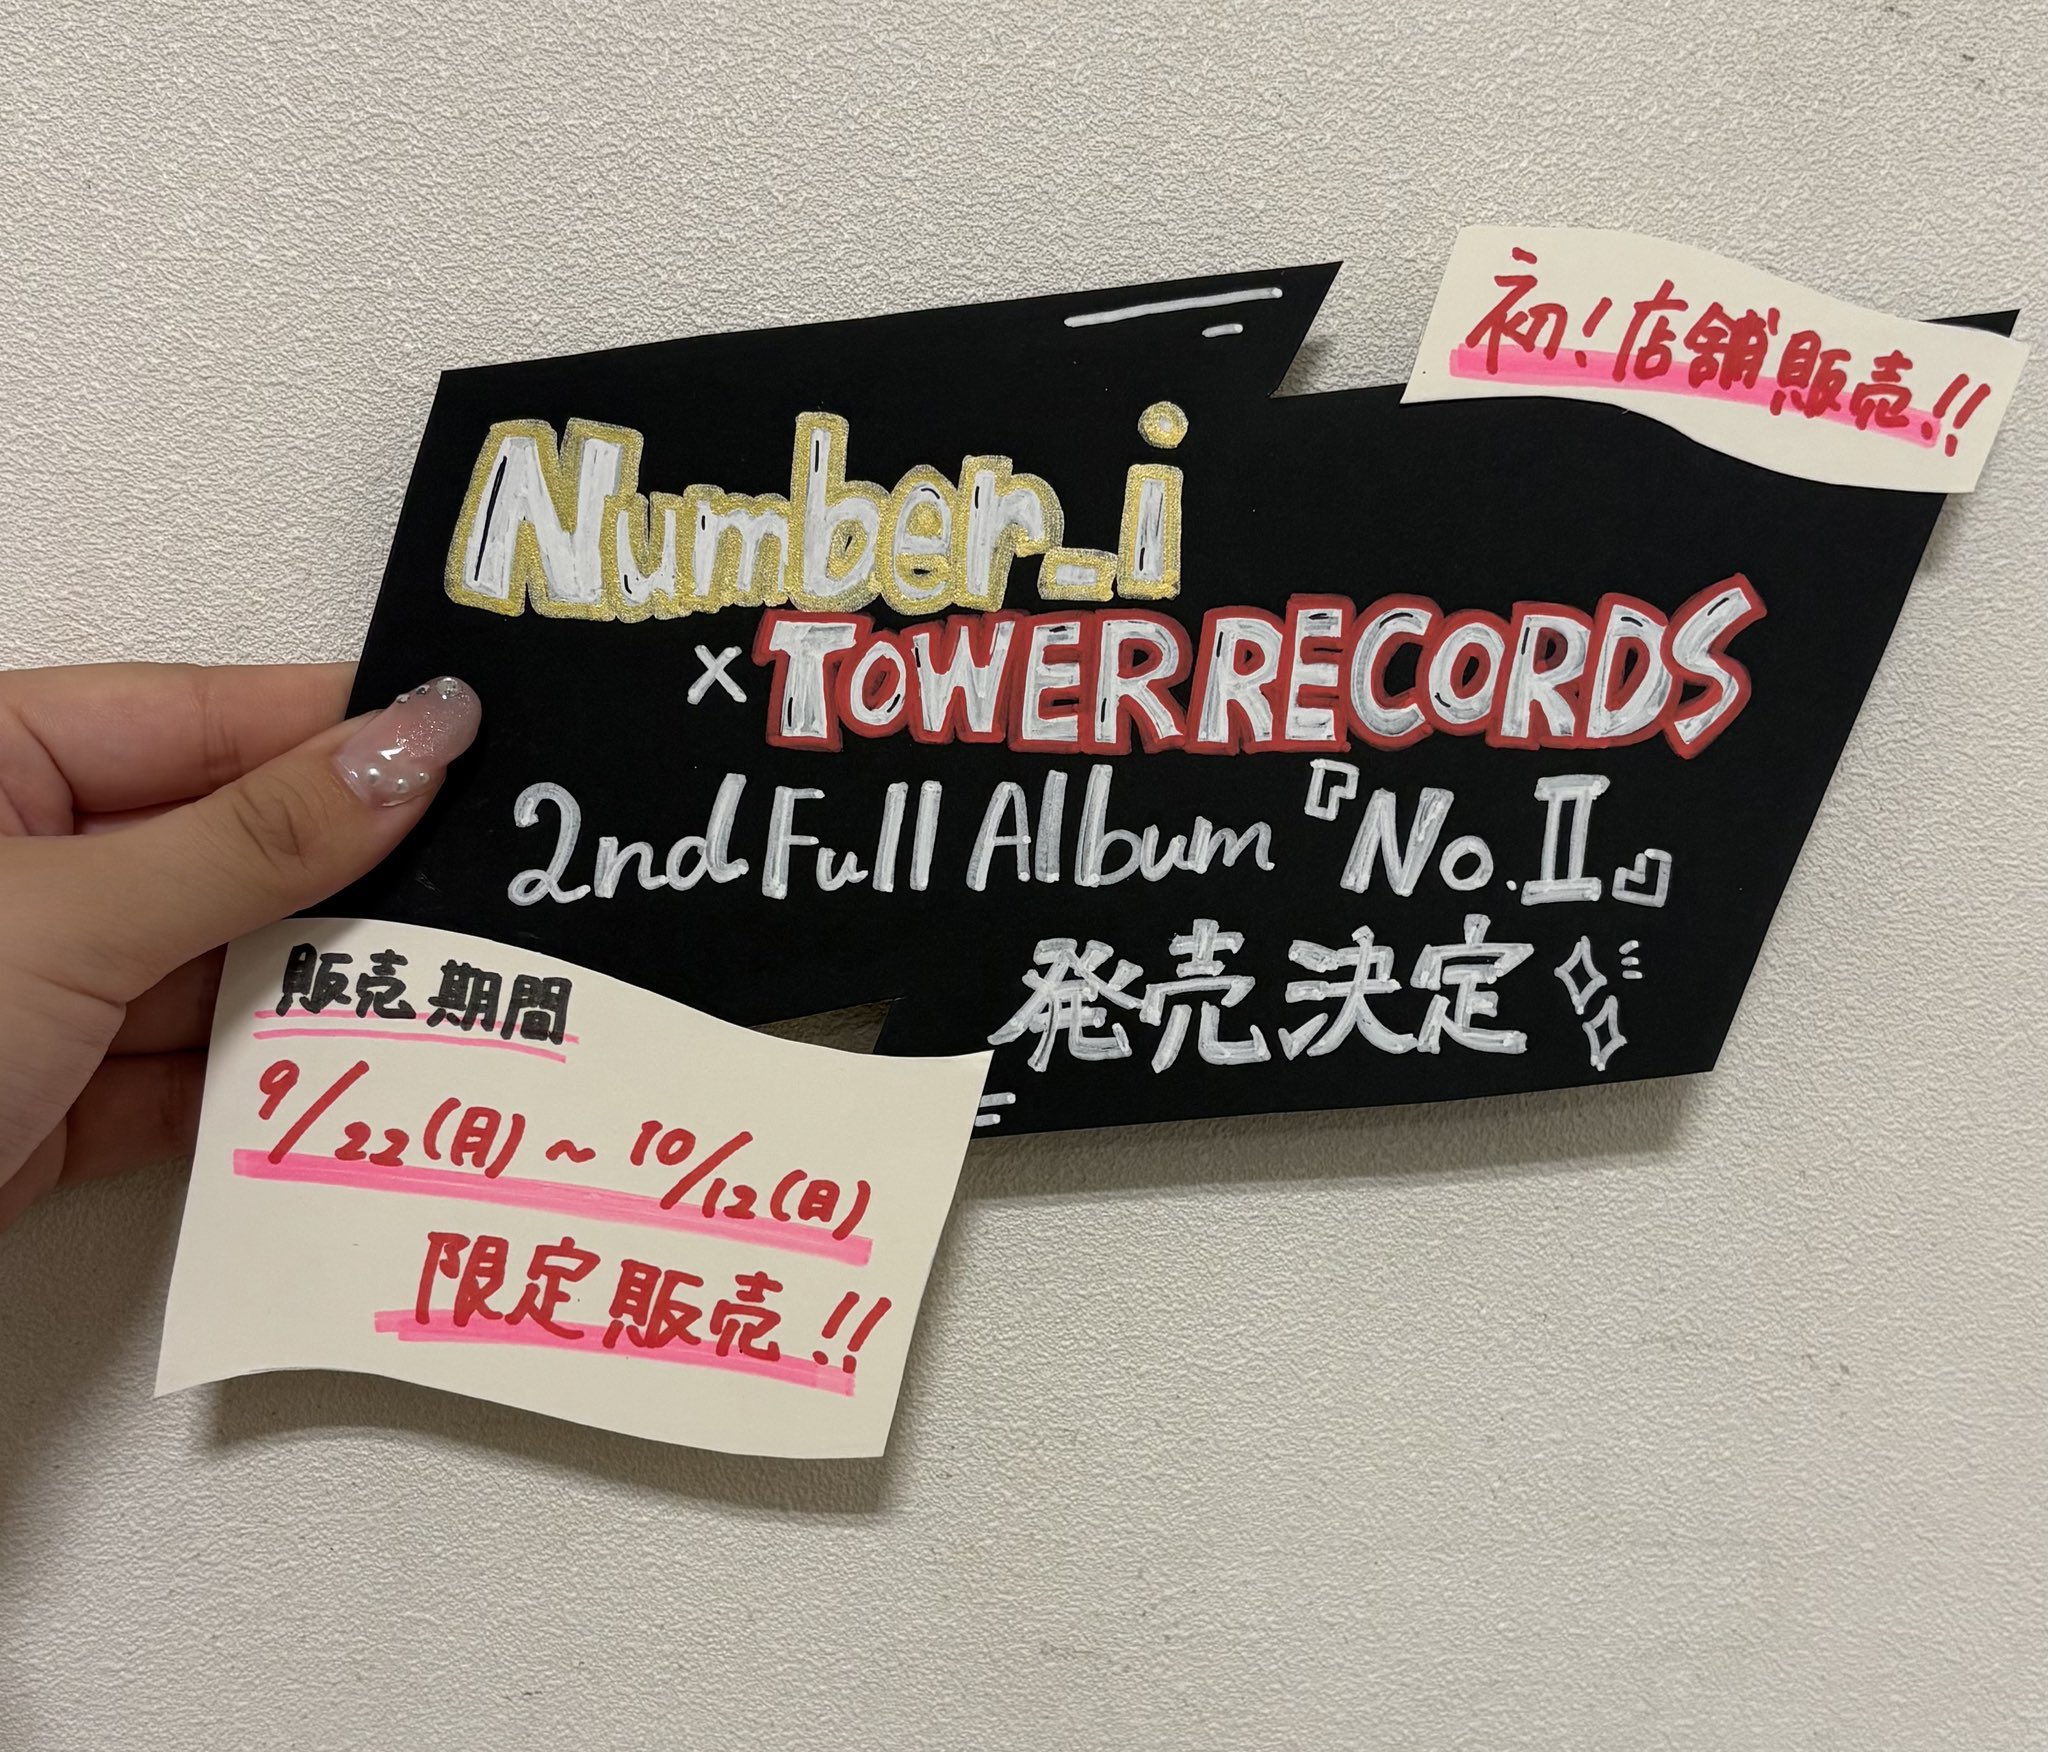 初!店舗販売!!
Number_i
×TOWER RECORDS
2nd Full Album『No.Ⅱ』
発売決定
販売期間
9/22(月)~10/12(日)
限定販売!!